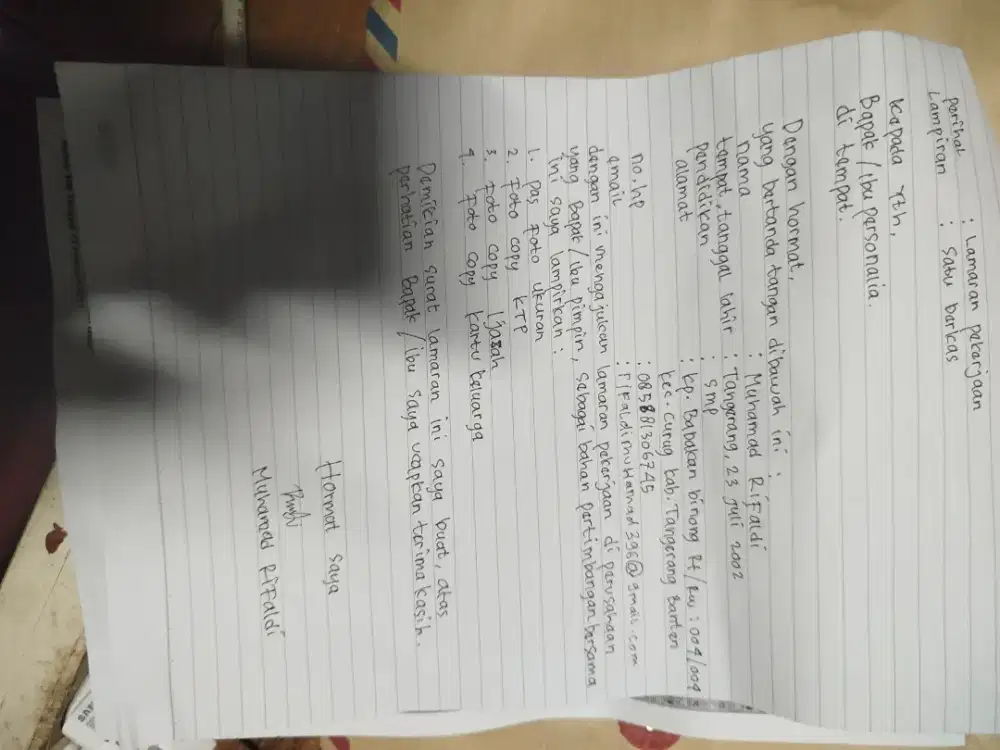 perihal : Lamaran pekerjaan
Lampiran : satu berkas
Kepada Yth,
Bapak / ibu personalia.
di tempat.
Dengan hormat,
yang bertanda tangan dibawah ini :
nama : Muhamad Rifaldi
tempat, tanggal lahir : Tangerang, 23 juli 2002
pendidikan : SMP
alamat : kp. Babakan binong Rt/Rw : 004/004
kec. Curug kab. Tangerang Banten
no.hp : 085881306745
email : rifaldimuhamad396@gmail.com
dengan ini mengajukan lamaran pekerjaan di perusahaan
yang Bapak / ibu pimpin, sebagai bahan pertimbangan bersama
ini saya lampirkan :
1. pas foto ukuran
2. Foto copy KTP
3. Foto copy Ijazah
4. Foto copy kartu keluarga
Demikian surat lamaran ini saya buat, atas
perhatian Bapak / ibu saya ucapkan terimakasih.
Hormat saya
Muhamad Rifaldi